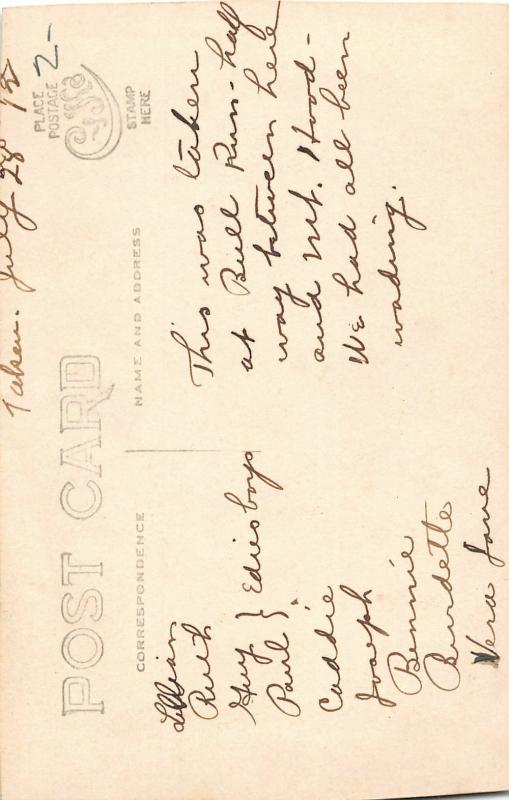 Taken. July 28 12
POST CARD
CORRESPONDENCE
NAME AND ADDRESS
PLACE
POSTAGE
STAMP
HERE
2-
Lillian
Ruth
Guy } Edies boys
Paul }
Caddie
Joseph
Bennie
Burdette
Vera Jane
This was taken
at Bull Run - half
way between here
and Mt. Hood -
We had all been
wading.